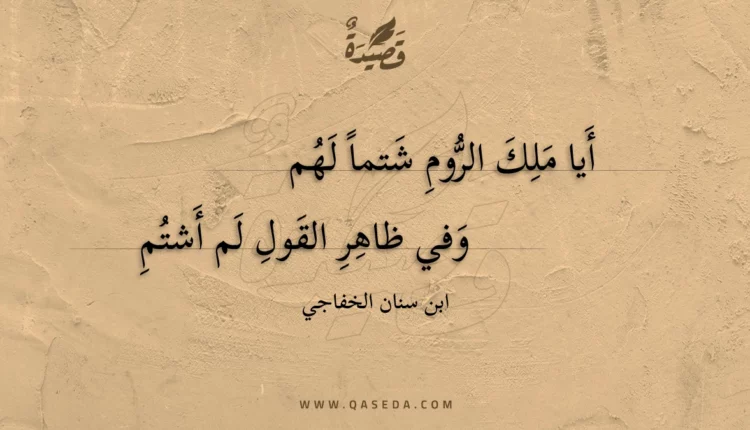 قَصِيدَةٌ
أَيا مَلِكَ الرُّومِ شَتماً لَهُم
وَفي ظاهِرِ القَولِ لَم أَشتُمِ
ابن سنان الخفاجي
WWW.QASEDA.COM